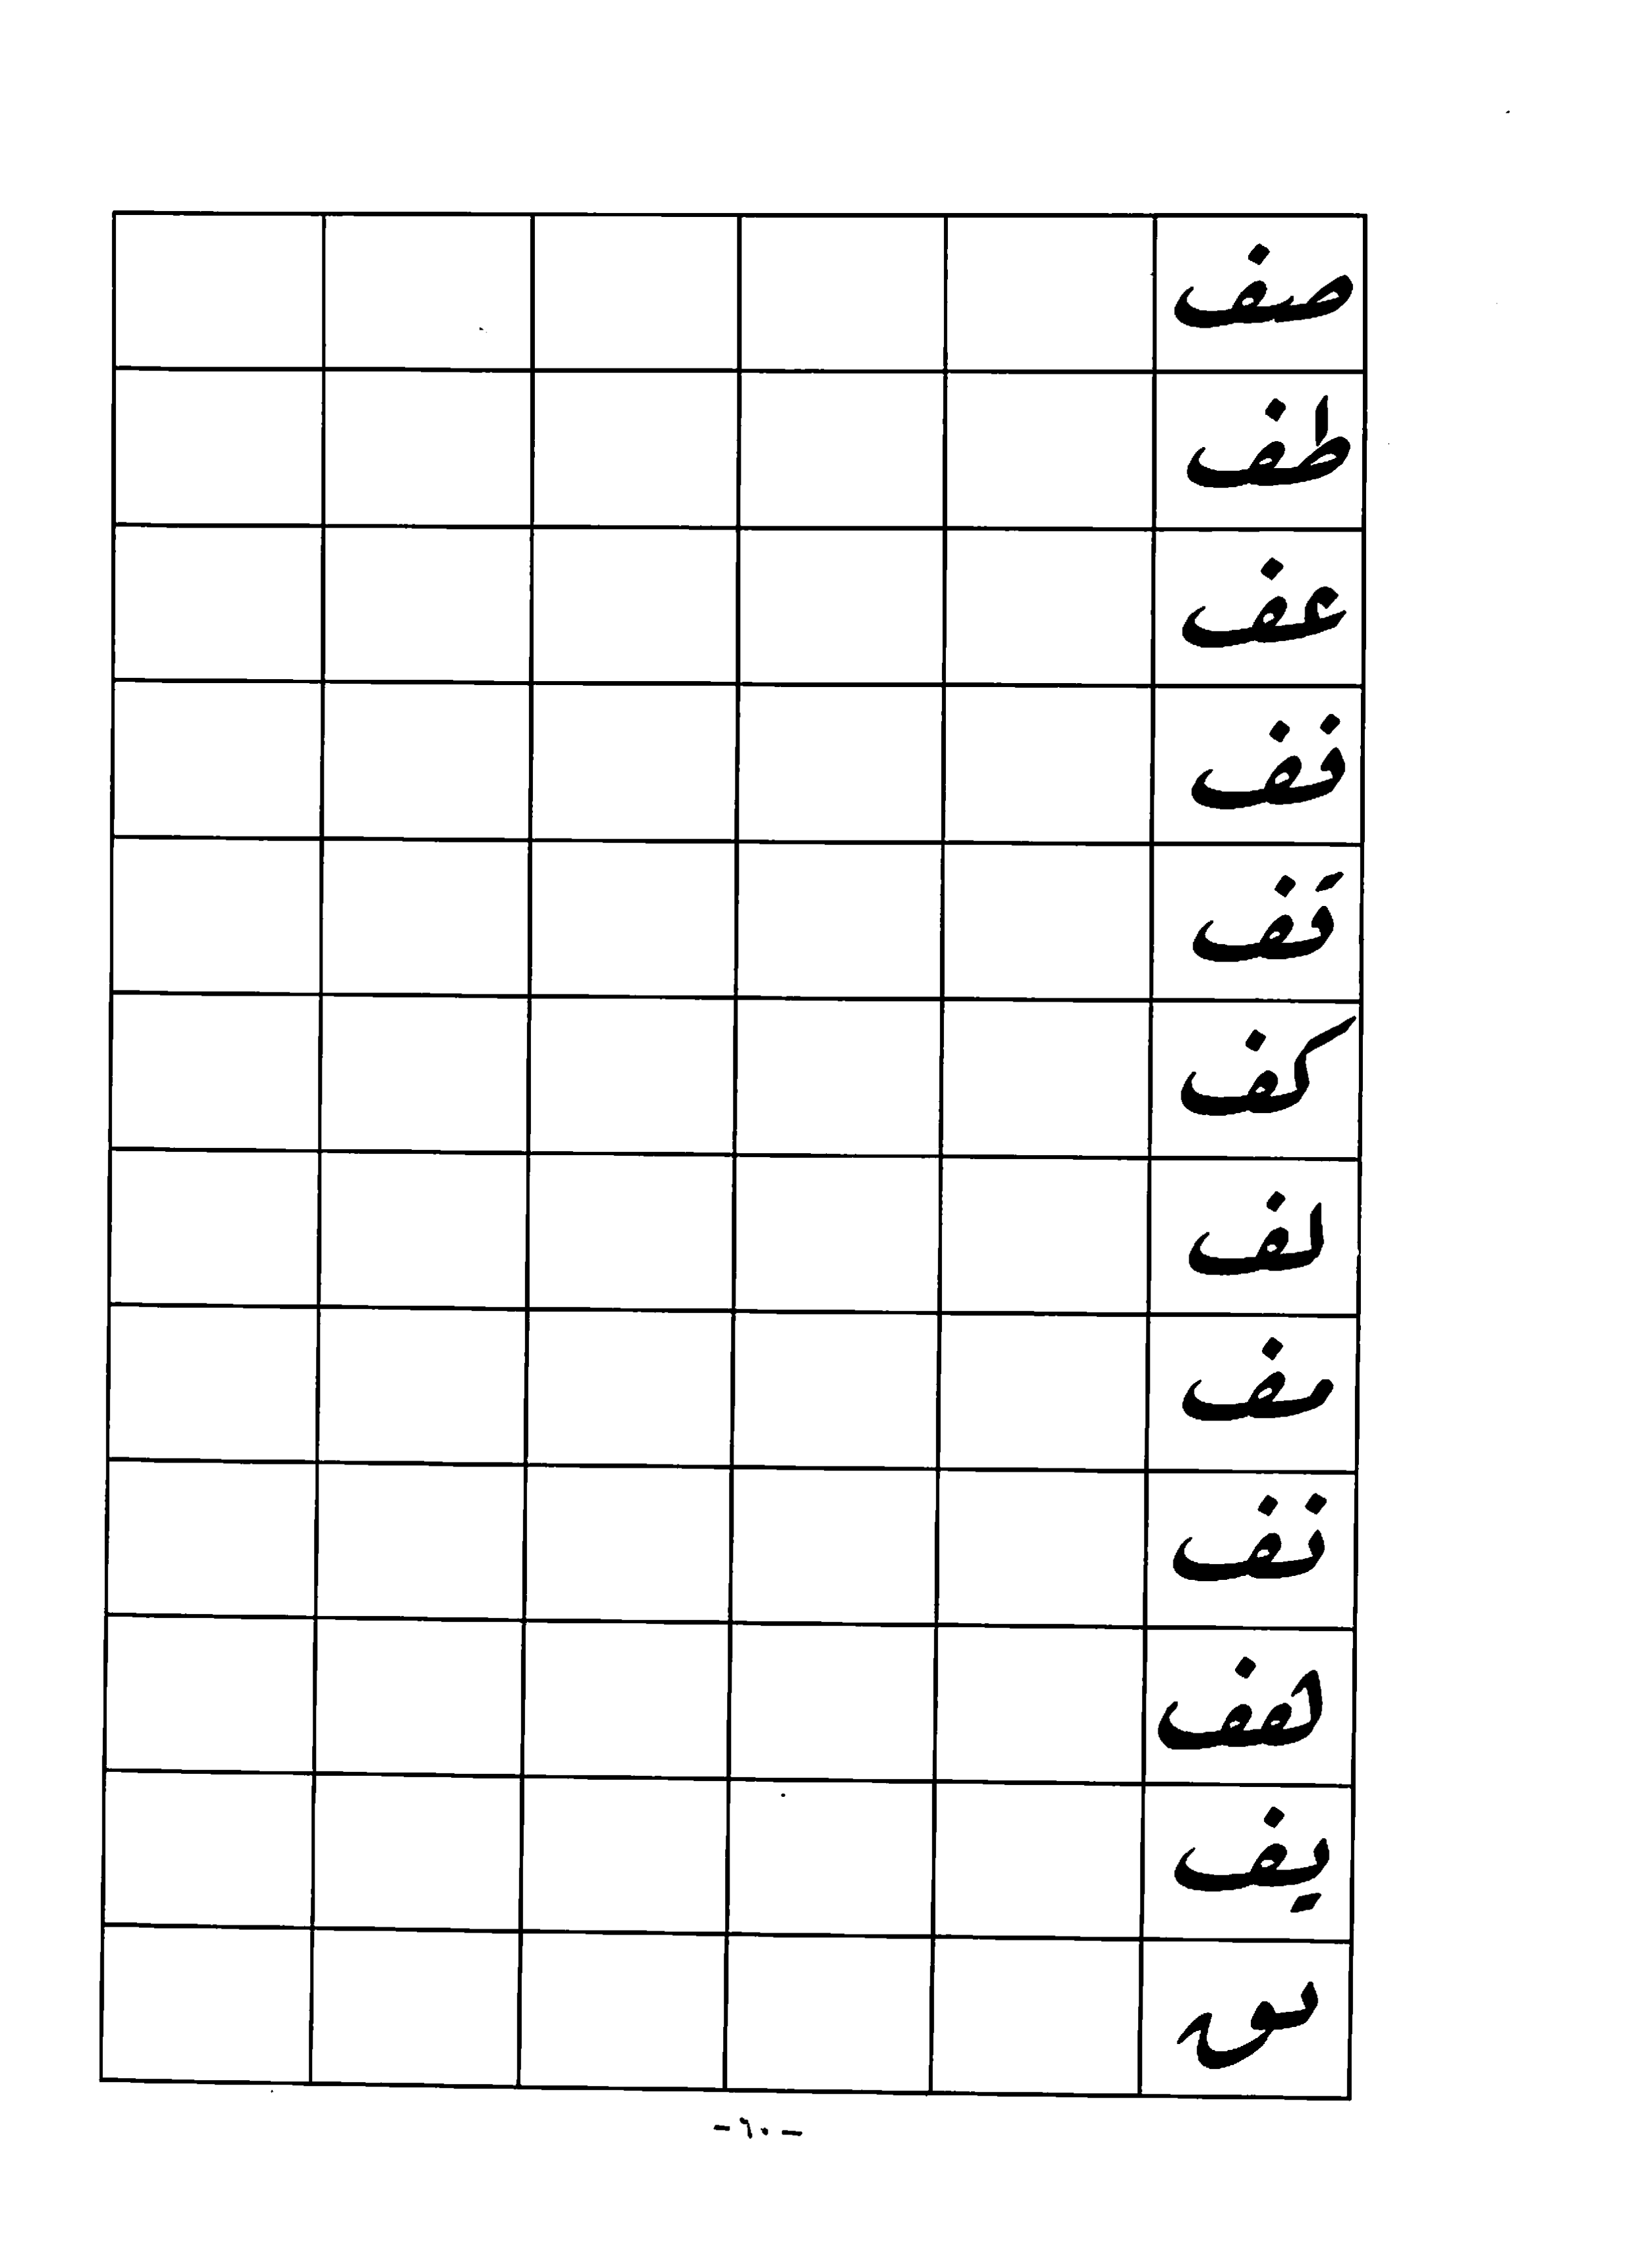 صف
طف
عف
فف
تف
كف
لف
مف
نف
هف
يف
ٮٯ
-٦٠-